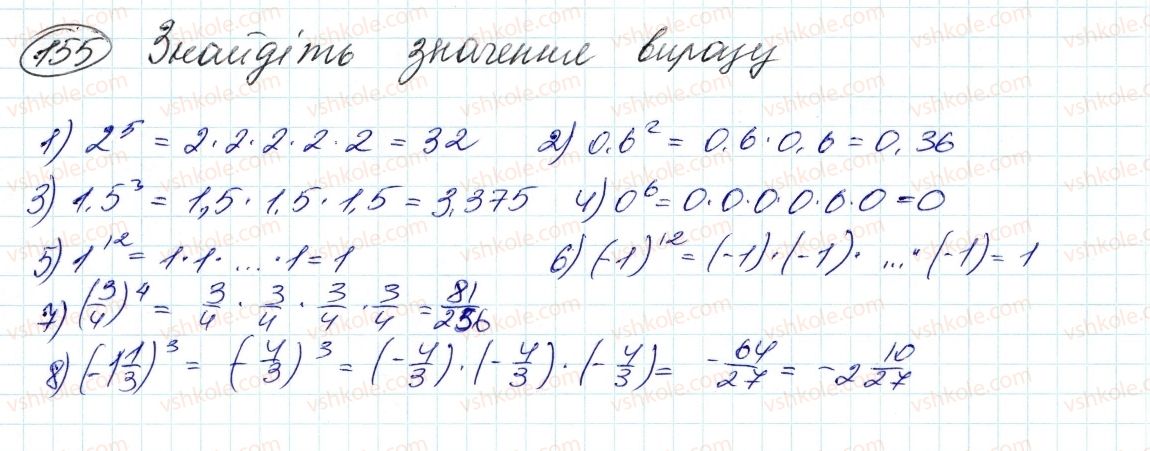 155 Знайдіть значення виразу
1) 2⁵ = 2·2·2·2·2 = 32 2) 0,6² = 0,6·0,6 = 0,36
3) 1,5³ = 1,5·1,5·1,5 = 3,375 4) 0⁶ = 0·0·0·0·0·0 = 0
5) 1¹² = 1·1·...·1 = 1 6) (-1)¹² = (-1)·(-1)·...·(-1) = 1
7) (3/4)⁴ = 3/4 · 3/4 · 3/4 · 3/4 = 81/256
8) (-1 1/3)³ = (-4/3)³ = (-4/3)·(-4/3)·(-4/3) = -64/27 = -2 10/27